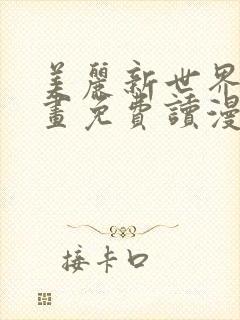 美麗新世界
畫免費讀漫
接卡口